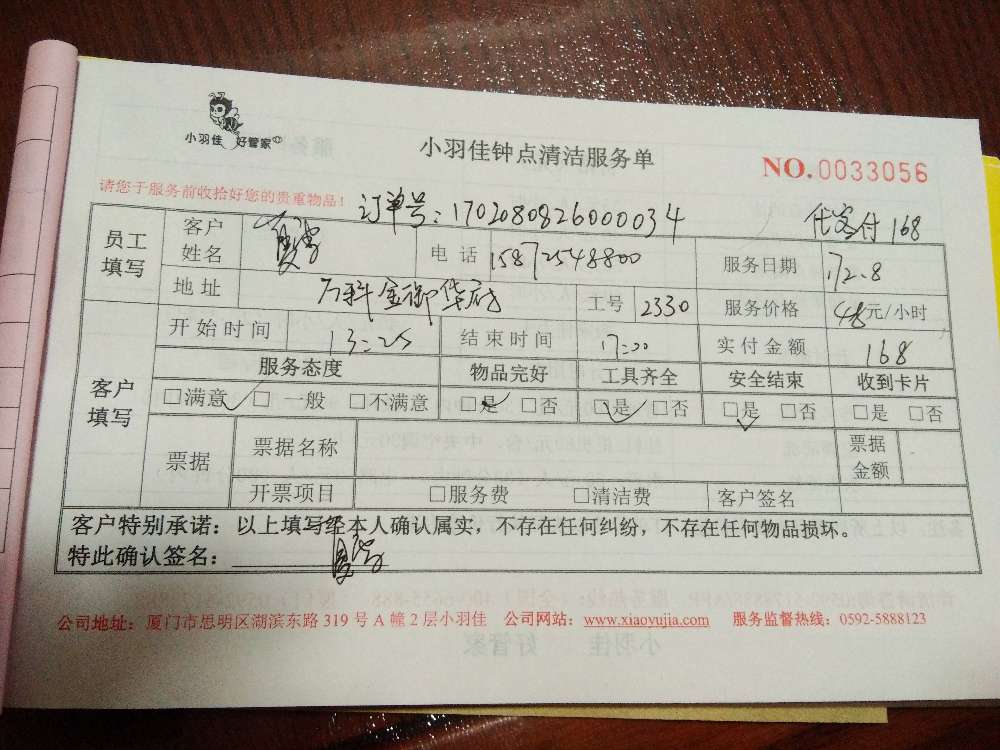 小羽佳 好管家
小羽佳钟点清洁服务单
NO.0033056
请您于服务前收拾好您的贵重物品!
订单号:1702080826000034
代客付168
员工填写 客户姓名 电话 15872548800 服务日期 17.2.8
地址 万科金御华府 工号 2330 服务价格 48元/小时
开始时间 13:25 结束时间 17:00 实付金额 168
客户填写 服务态度 物品完好 工具齐全 安全结束 收到卡片
□满意✓ □一般 □不满意 □是✓ □否 □是✓ □否 □是✓ □否 □是 □否
票据 票据名称 票据金额
开票项目 □服务费 □清洁费 客户签名
客户特别承诺:以上填写经本人确认属实,不存在任何纠纷,不存在任何物品损坏。
特此确认签名:
公司地址:厦门市思明区湖滨东路 319 号 A 幢 2 层小羽佳 公司网站:www.xiaoyujia.com 服务监督热线:0592-5888123